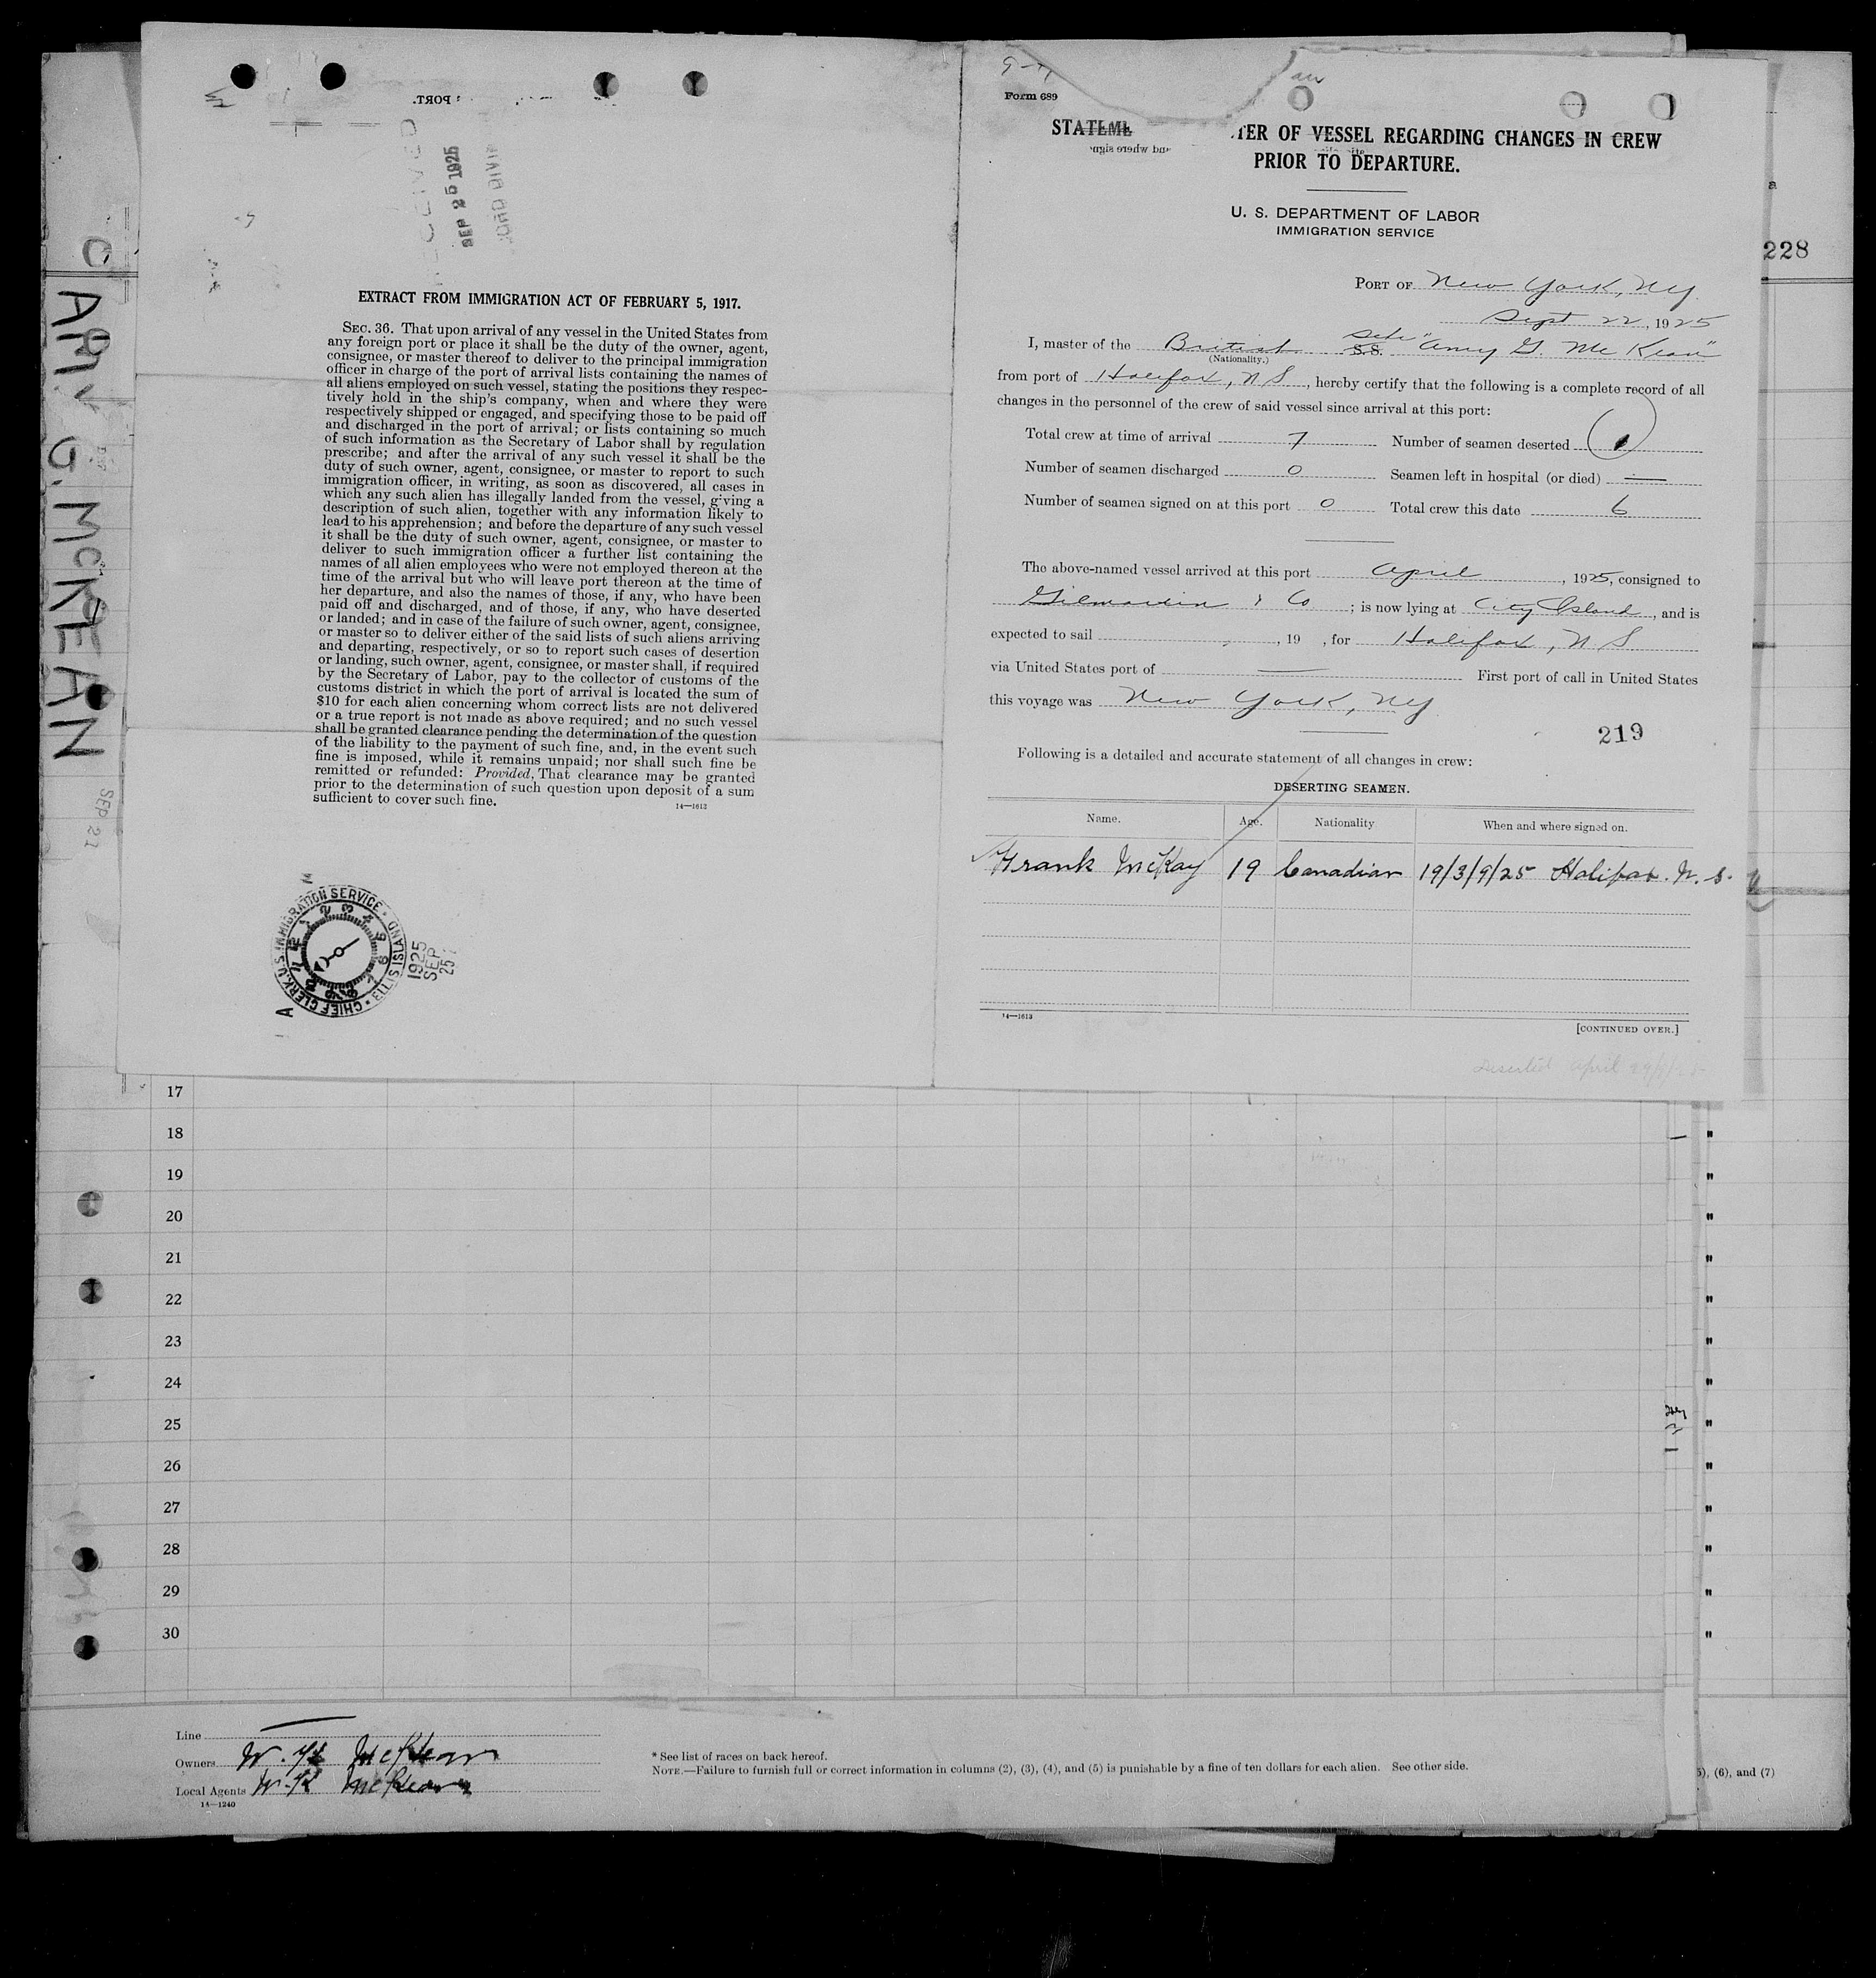 PORT.
RECEIVED
SEP 25 1925
EXTRACT FROM IMMIGRATION ACT OF FEBRUARY 5, 1917.
SEC. 36. That upon arrival of any vessel in the United States from
any foreign port or place it shall be the duty of the owner, agent,
consignee, or master thereof to deliver to the principal immigration
officer in charge of the port of arrival lists containing the names of
all aliens employed on such vessel, stating the positions they respec-
tively hold in the ship's company, when and where they were
respectively shipped or engaged, and specifying those to be paid off
and discharged in the port of arrival; or lists containing so much
of such information as the Secretary of Labor shall by regulation
prescribe; and after the arrival of any such vessel it shall be the
duty of such owner, agent, consignee, or master to report to such
immigration officer, in writing, as soon as discovered, all cases in
which any such alien has illegally landed from the vessel, giving a
description of such alien, together with any information likely to
lead to his apprehension; and before the departure of any such vessel
it shall be the duty of such owner, agent, consignee, or master to
deliver to such immigration officer a further list containing the
names of all alien employees who were not employed thereon at the
time of the arrival but who will leave port thereon at the time of
her departure, and also the names of those, if any, who have been
paid off and discharged, and of those, if any, who have deserted
or landed; and in case of the failure of such owner, agent, consignee,
or master so to deliver either of the said lists of such aliens arriving
and departing, respectively, or so to report such cases of desertion
or landing, such owner, agent, consignee, or master shall, if required
by the Secretary of Labor, pay to the collector of customs of the
customs district in which the port of arrival is located the sum of
$10 for each alien concerning whom correct lists are not delivered
or a true report is not made as above required; and no such vessel
shall be granted clearance pending the determination of the question
of the liability to the payment of such fine, and, in the event such
fine is imposed, while it remains unpaid; nor shall such fine be
remitted or refunded: Provided, That clearance may be granted
prior to the determination of such question upon deposit of a sum
sufficient to cover such fine.
14—1613
CHIEF CLERK, U.S. IMMIGRATION SERVICE • ELLIS ISLAND
1925
SEP
25
G. MCKEAN
SEP 21
Form 689
TER OF VESSEL REGARDING CHANGES IN CREW
PRIOR TO DEPARTURE.
and where sign
U. S. DEPARTMENT OF LABOR
IMMIGRATION SERVICE
PORT OF New York, NY
Sept 22, 1925
I, master of the British S.S. "Amy G. McKean"
(Nationality.)
from port of Halifax, N S, hereby certify that the following is a complete record of all
changes in the personnel of the crew of said vessel since arrival at this port:
Total crew at time of arrival 7 Number of seamen deserted 1
Number of seamen discharged 0 Seamen left in hospital (or died) —
Number of seamen signed on at this port 0 Total crew this date 6
The above-named vessel arrived at this port April, 1925, consigned to
Gilmartin & Co; is now lying at City Island, and is
expected to sail , 19 , for Halifax, N S
via United States port of — First port of call in United States
this voyage was New York, NY
219
Following is a detailed and accurate statement of all changes in crew:
DESERTING SEAMEN.
Name. Age. Nationality When and where signed on.
Frank McKay 19 Canadian 19/3/9/25 Halifax. N. S.
14—1613
[CONTINUED OVER.]
Deserted April
228
17
18
19
20
21
22
23
24
25
26
27
28
29
30
Line —
Owners McKean
Local Agents McKean
14—1240
* See list of races on back hereof.
NOTE.—Failure to furnish full or correct information in columns (2), (3), (4), and (5) is punishable by a fine of ten dollars for each alien. See other side.
5), (6), and (7)